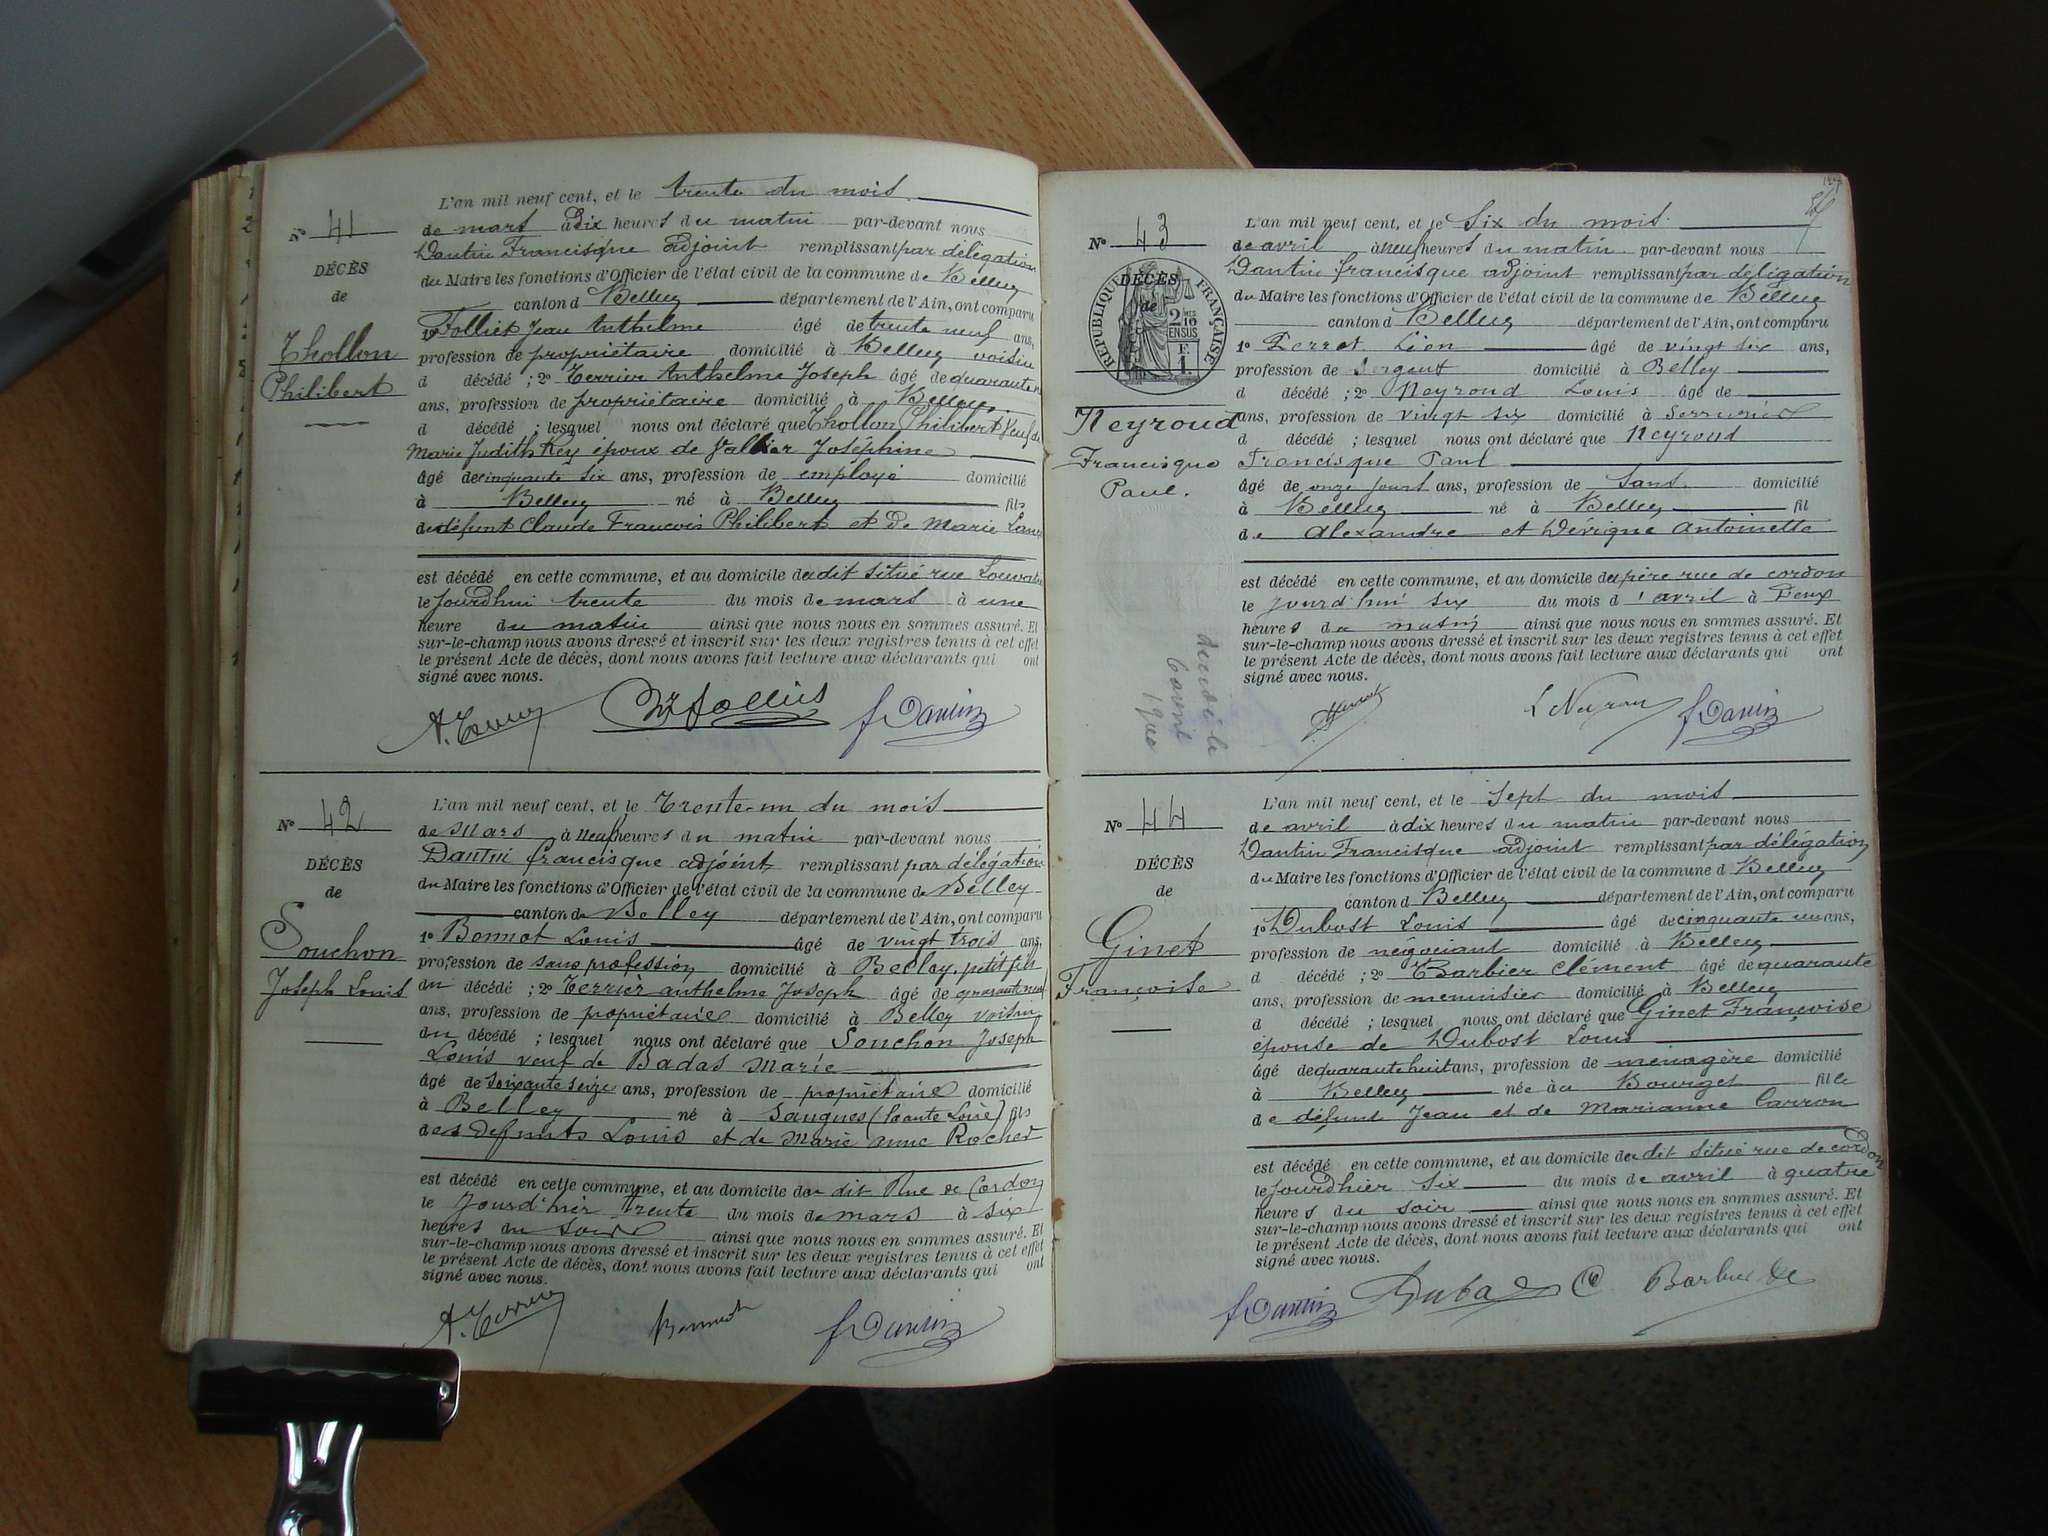 L'an mil neuf cent, et le trente du mois
N° 41
de mars à dix heures du matin par-devant nous
Dantin Francisque adjoint remplissant par délégation
DÉCÈS
du Maire les fonctions d'Officier de l'état civil de la commune de Belley
de
canton d Belley département de l'Ain, ont comparu
1° Folliet Jean Anthelme âgé de trente neuf ans,
Thollon
profession de propriétaire domicilié à Belley voisin
Philibert
d décédé ; 2° Terrier Anthelme Joseph âgé de quarante
ans, profession de propriétaire domicilié à Belley
d décédé ; lesquel nous ont déclaré que Thollon Philibert Veuf de
Marie Judith Rey époux de Vallier Joséphine
âgé de cinquante six ans, profession de employé domicilié
à Belley né à Belley fils
de défunt Claude François Philibert et De Marie
est décédé en cette commune, et au domicile du dit situé rue
le jourdhui trente du mois de mars à une
heure du matin ainsi que nous nous en sommes assuré. Et
sur-le-champ nous avons dressé et inscrit sur les deux registres tenus à cet effet
le présent Acte de décès, dont nous avons fait lecture aux déclarants qui ont
signé avec nous.
A. Terrier Folliet f Dantin
L'an mil neuf cent, et le Trente-un du mois
N° 42
de Mars à neuf heures du matin par-devant nous
Dantin francisque adjoint remplissant par délégation
DÉCÈS
du Maire les fonctions d'Officier de l'état civil de la commune de Belley
de
canton de Belley département de l'Ain, ont comparu
1° Bonnot Louis âgé de vingt trois ans,
Souchon
profession de sans profession domicilié à Belley, petit fils
Joseph Louis
du décédé ; 2° Terrier anthelme Joseph âgé de quarante neuf
ans, profession de propriétaire domicilié à Belley Voisin
du décédé ; lesquel nous ont déclaré que Souchon Joseph
Louis veuf de Badas Marie
âgé de soixante seize ans, profession de propriétaire domicilié
à Belley né à Saugues (haute Loire) fils
des defunts Louis et de Marie anne Rocher
est décédé en cette commune, et au domicile du dit Rue de Cordon
le Jourd'hier trente du mois de mars à six
heures du soir ainsi que nous nous en sommes assuré. Et
sur-le-champ nous avons dressé et inscrit sur les deux registres tenus à cet effet
le présent Acte de décès, dont nous avons fait lecture aux déclarants qui ont
signé avec nous.
A. Terrier Bonnot f Dantin
L'an mil neuf cent, et le Six du mois
N° 43
de avril à neuf heures du matin par-devant nous
Dantin francisque adjoint remplissant par délégation
RÉPUBLIQUE FRANÇAISE
DÉCÈS
de
2 MES 10
EN SUS
F. 1
du Maire les fonctions d'Officier de l'état civil de la commune de Belley
canton d Belley département de l'Ain, ont comparu
1° Perret Léon âgé de vingt six ans,
profession de Sergent domicilié à Belley
d décédé ; 2° Neyroud Louis âgé de
Neyroud
ans, profession de vingt six domicilié à Serrurier
d décédé ; lesquel nous ont déclaré que Neyroud
Francisque
Francisque Paul
Paul.
âgé de onze jours ans, profession de Sans domicilié
à Belley né à Belley fil
de Alexandre et Dévigne Antoinette
est décédé en cette commune, et au domicile du père rue de cordon
le jourd'hui six du mois d'avril à Deux
heures du matin ainsi que nous nous en sommes assuré. Et
sur-le-champ nous avons dressé et inscrit sur les deux registres tenus à cet effet
le présent Acte de décès, dont nous avons fait lecture aux déclarants qui ont
signé avec nous.
6 avril
1900
f Dantin
L'an mil neuf cent, et le Sept du mois
N° 44
de avril à dix heures du matin par-devant nous
Dantin Francisque adjoint remplissant par délégation
DÉCÈS
du Maire les fonctions d'Officier de l'état civil de la commune d Belley
de
canton d Belley département de l'Ain, ont comparu
1° Dubost Louis âgé de cinquante un ans,
Ginet
profession de négociant domicilié à Belley
Françoise
d décédé ; 2° Barbier Clément âgé de quarante
ans, profession de menuisier domicilié à Belley
d décédé ; lesquel nous ont déclaré que Ginet Françoise
épouse de Dubost Louis
âgé de quarante huit ans, profession de ménagère domicilié
à Belley née au Bourget fille
de défunt Jean et de Marianne Carron
est décédé en cette commune, et au domicile du dit situé rue de cordon
le jourdhier six du mois de avril à quatre
heures du soir ainsi que nous nous en sommes assuré. Et
sur-le-champ nous avons dressé et inscrit sur les deux registres tenus à cet effet
le présent Acte de décès, dont nous avons fait lecture aux déclarants qui ont
signé avec nous.
f Dantin C. Barbier